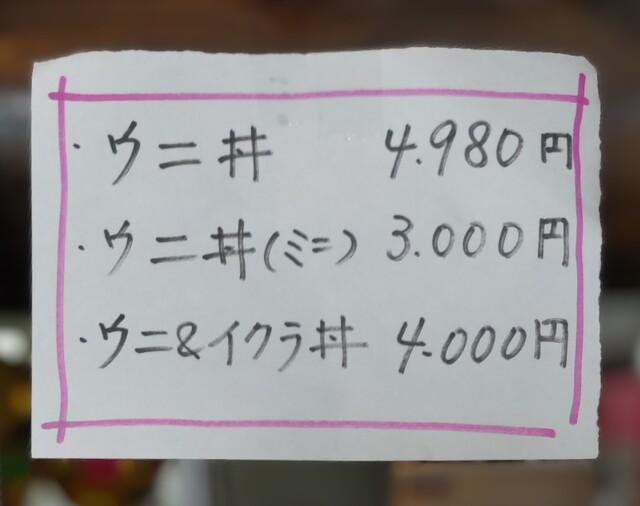 ・ウニ丼 4.980円
・ウニ丼(ミニ) 3.000円
・ウニ&イクラ丼 4.000円